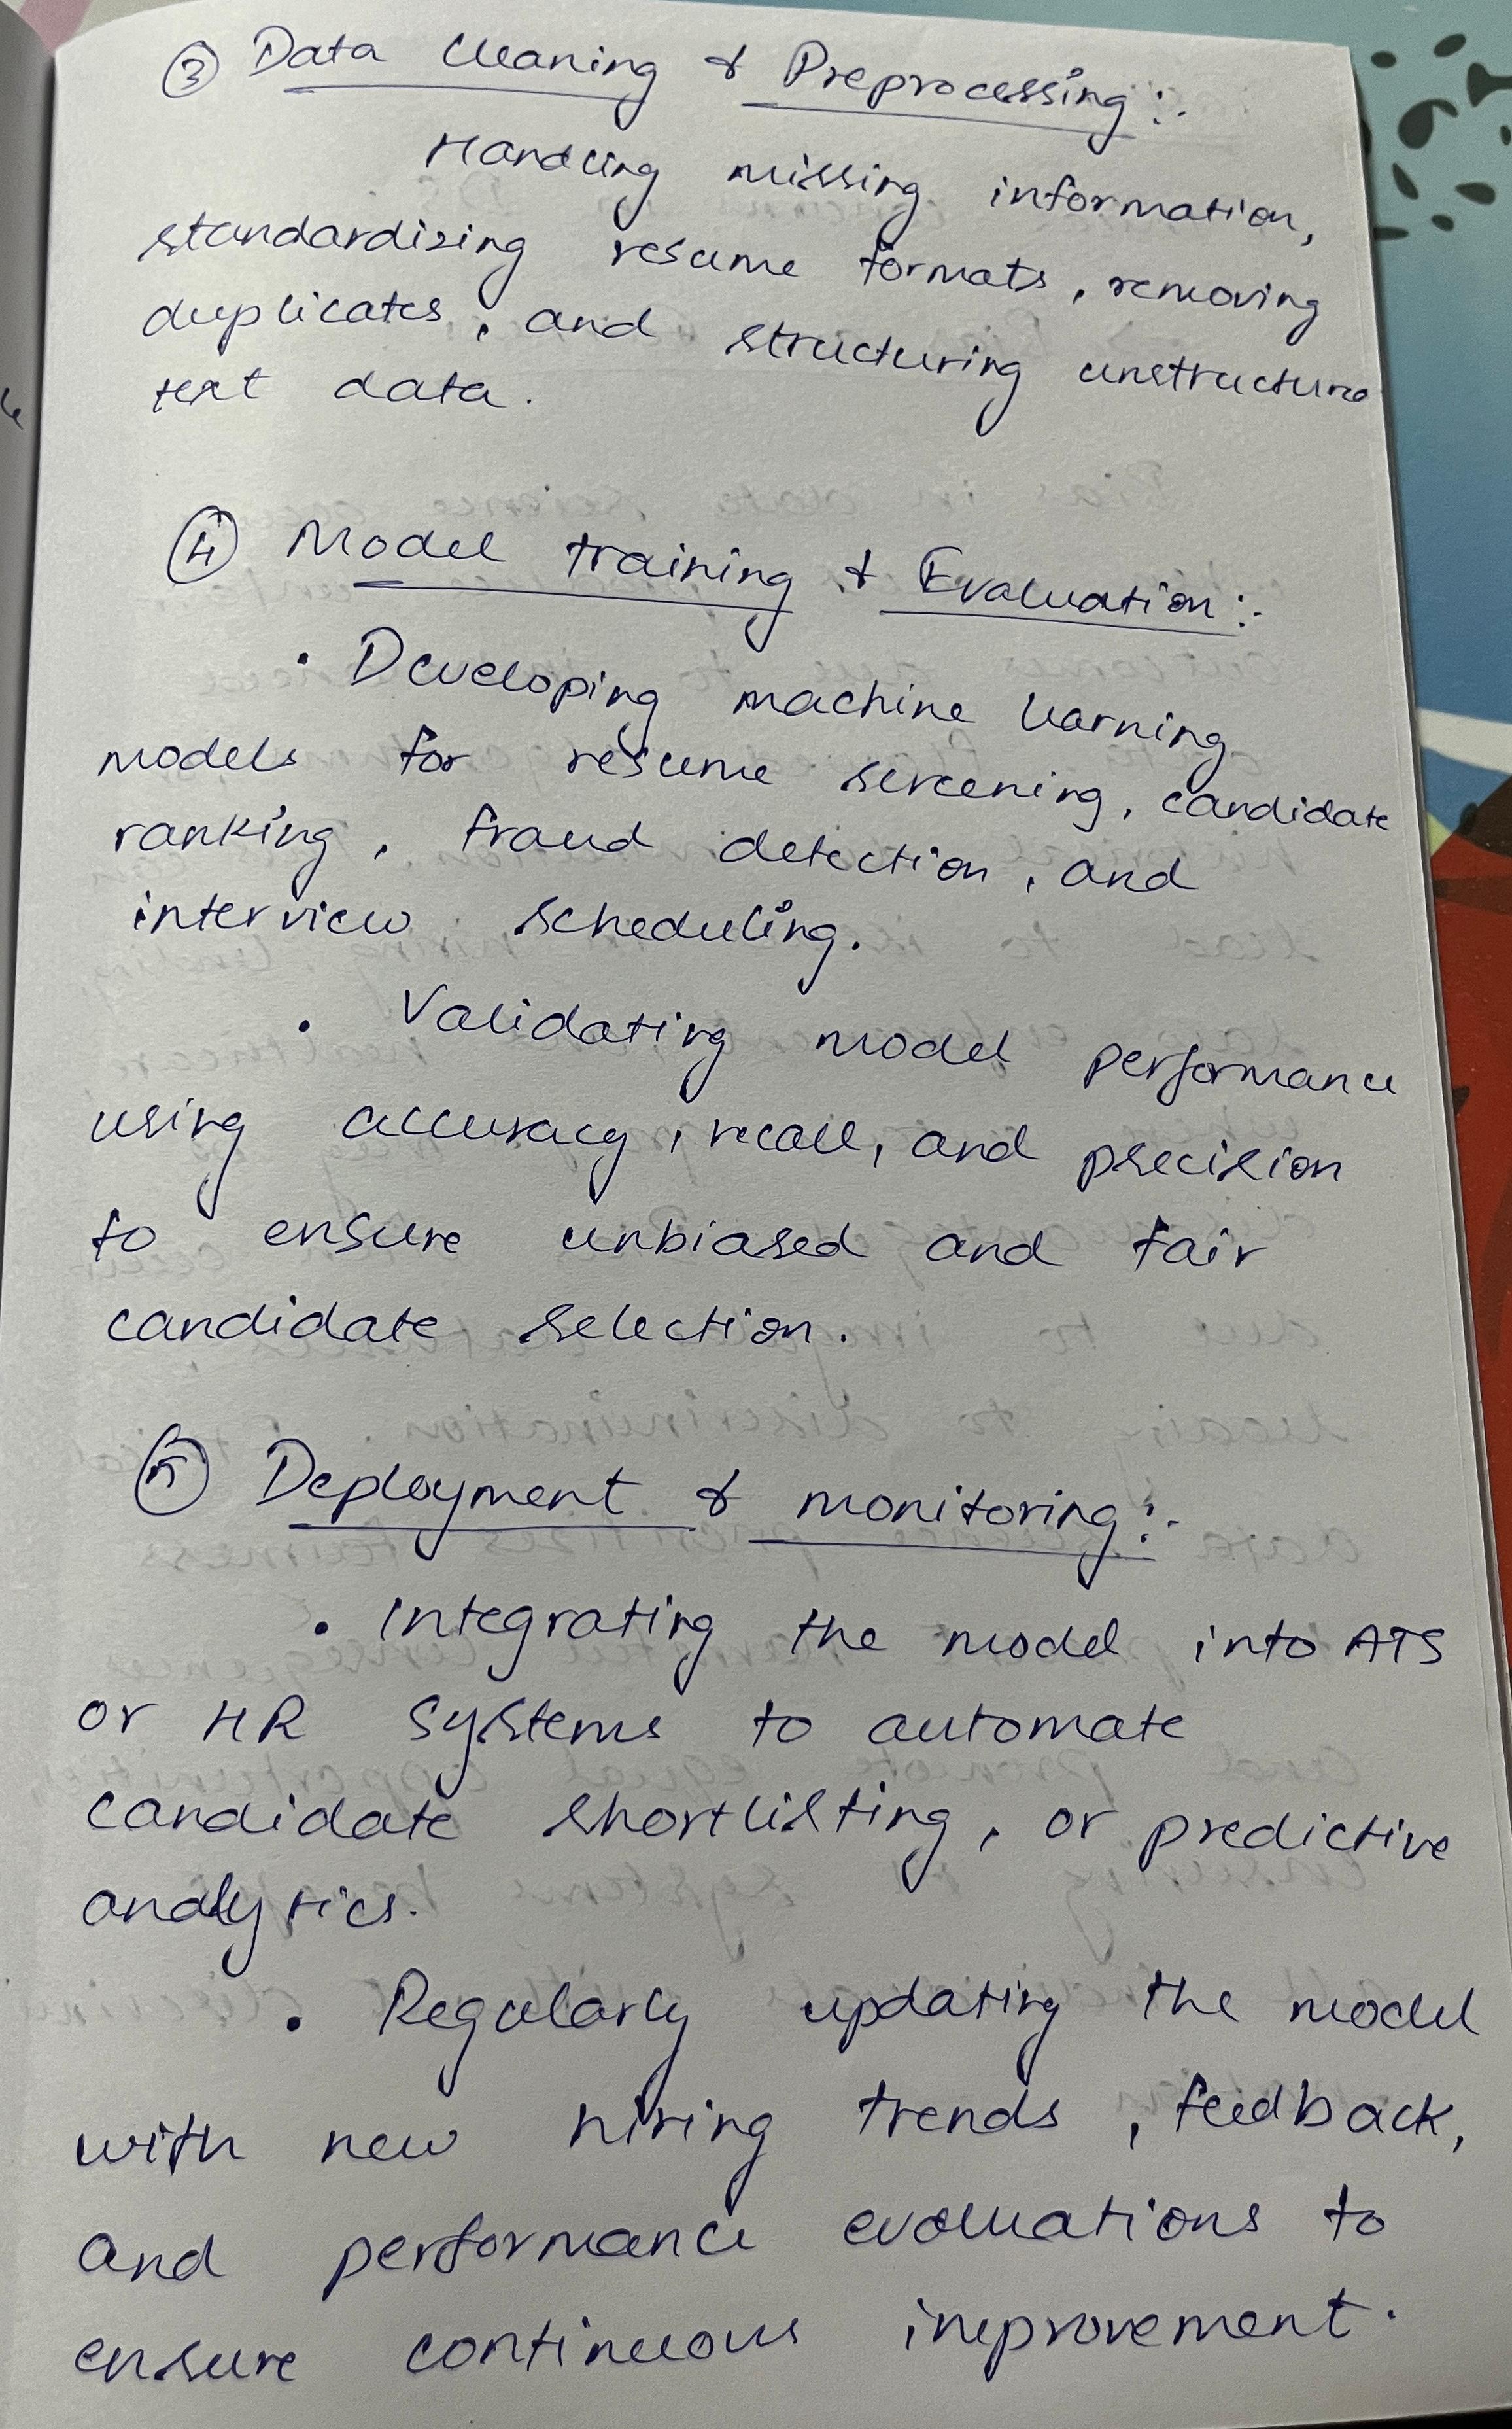 ③ Data Cleaning & Preprocessing:-
Handling missing information,
standardizing resume formats, removing
duplicates, and structuring unstructure
text data.
④ Model training & Evaluation:-
• Developing machine learning
models for resume screening, candidate
ranking, fraud detection, and
interview scheduling.
• Validating model performance
using accuracy, recall, and precision
to ensure unbiased and fair
candidate selection.
⑤ Deployment & monitoring:-
• Integrating the model into ATS
or HR systems to automate
candidate shortlisting, or predictive
analytics.
• Regularly updating the model
with new hiring trends, feedback,
and performance evaluations to
ensure continuous improvement.